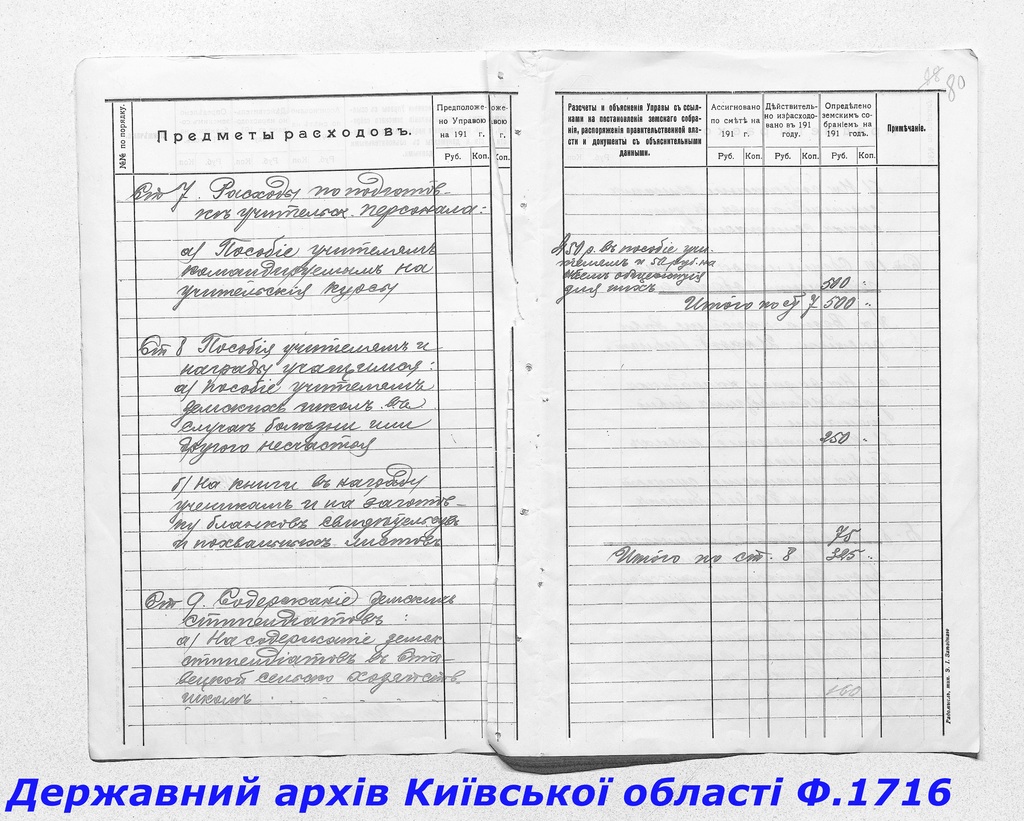 80
№№ по порядку.
Предметы расходовъ.
Предположе-
но Управою
на 191 г.
Руб. Коп.
Разсчеты и объясненія Управы съ ссыл-
ками на постановленія земскаго собра-
нія, распоряженія правительственной вла-
сти и документы съ объяснительными
данными.
Ассигновано
по смѣтѣ на
191 г.
Руб. Коп.
Дѣйствитель-
но израсходо-
вано въ 191
году.
Руб. Коп.
Опредѣлено
земскимъ со-
браніемъ на
191 годъ.
Руб. Коп.
Примѣчаніе.
Ст 7. Расходы по подготов-
кѣ учительск. персонала:
а) Пособіе учителямъ
командируемымъ на
учительскія курсы
50 р. въ пособіе учи-
телямъ и 50 руб. на
для нихъ 500 "
Итого по ст 7 500 "
Ст 8 Пособія учителямъ и
награды учащимся:
а) Пособіе учителямъ
земскихъ школъ въ
случаѣ болѣзни или
другого несчастья
250 "
б) На книги въ награду
ученикамъ и на заготов-
ку бланковъ свидѣтельствъ
и похвальныхъ листовъ
75
Итого по ст. 8 325 "
Ст 9. Содержаніе земскихъ
стипендіатовъ:
а) На содержаніе земск
стипендіатовъ въ Ста-
вецкой сельско хозяйств.
школѣ
160
Радомысль, тип.
Державний архів Київської області Ф.1716